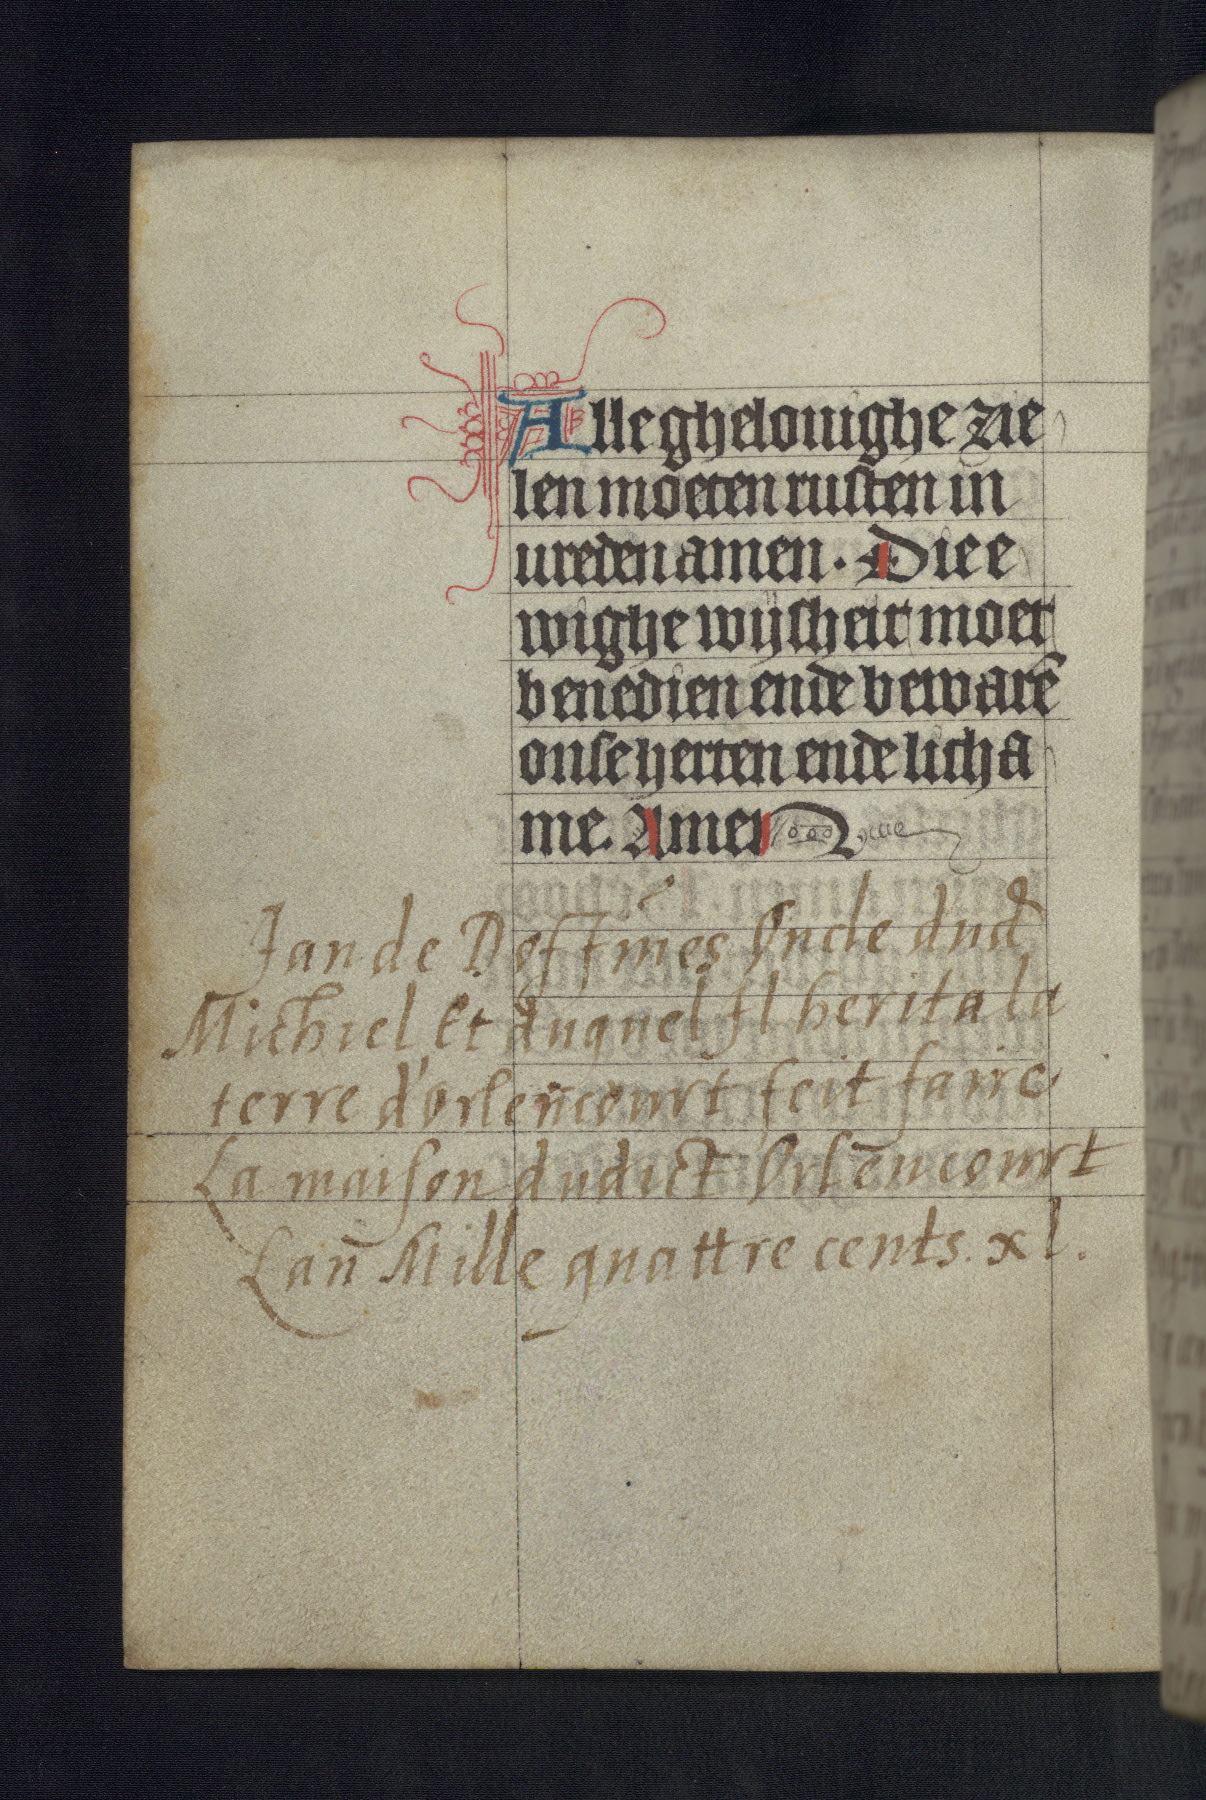 Alle ghelouighe zie
len moeten rusten in
ureden amen. Die e
wighe wijsheit moet
benedien ende bewarē
onse herten ende licha
me. Amen
Jan de Doffmes Oncle dud
Michiel Et duquel Il herita la
terre d'orlencourt feit faire
La maison dudict Orlencourt
Lan Mille quattre cents. xl.